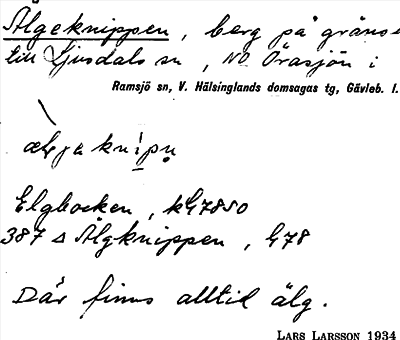 Älgeknippen, berg på gräns
till Ljusdals sn, NO Örasjön i
Ramsjö sn, V. Hälsinglands domsagas tg, Gävleb. l.
Elgbocken, k47850
387 Δ Älgknippen, h78
Där finns alltid älg.
LARS LARSSON 1934